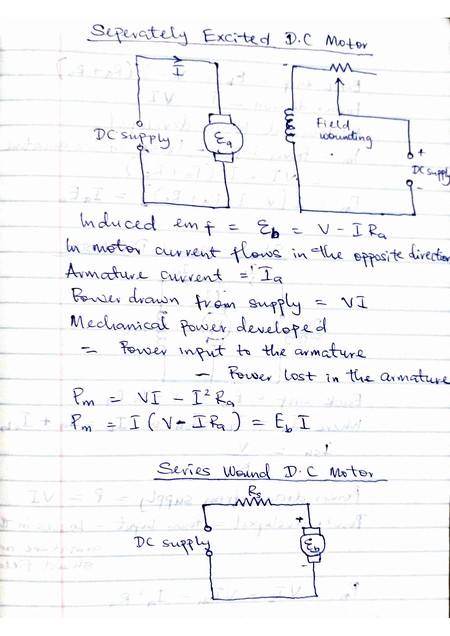 Seperately Excited D.C Motor
I
DC supply
Ea
Field
wounding
+
DC supply
-
Induced emf = Eb = V - IRa
In motor current flows in the opposite direction
Armature current = Ia
Power drawn from supply = VI
Mechanical power developed
= Power input to the armature
- Power lost in the armature
Pm = VI - I²Ra
Pm = I(V - IRa) = EbI
Series Wound D.C Motor
Rs
DC supply
+
Eb
-